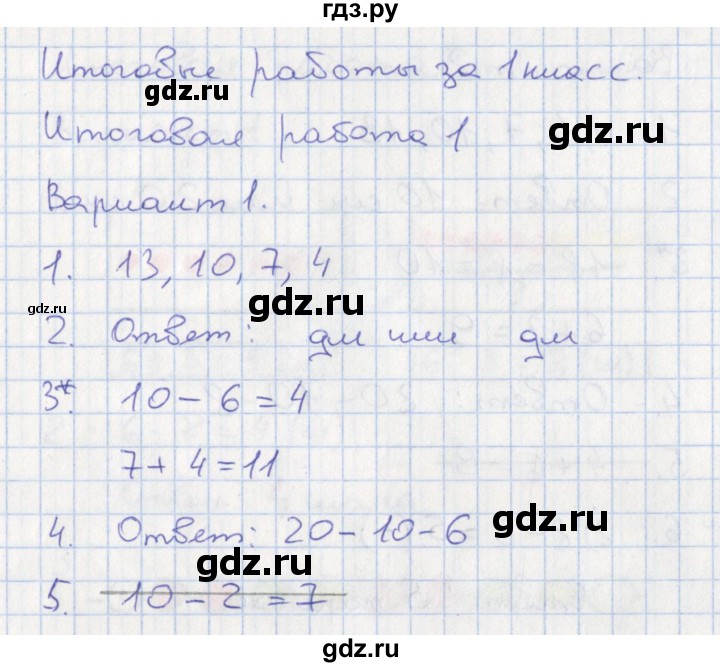 гдз.ру
Итоговые работы за 1 класс.
gdz.ru
Итоговая работа 1
gdz.ru
Вариант 1.
1. 13, 10, 7, 4
gdz.ru
gdz.ru
2. Ответ: дм или дм
3*. 10 - 6 = 4
7 + 4 = 11
4. Ответ: 20 - 10 - 6
gdz.ru
gdz.ru
5. 10 - 2 = 7
gdz.ru